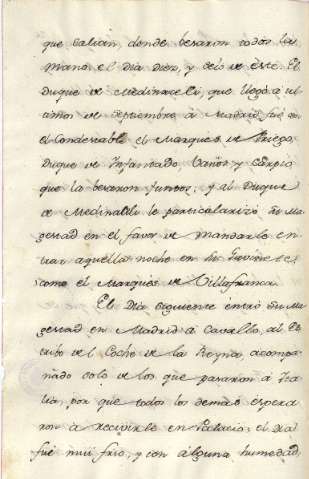 que salian, donde besaron todos la
Mano el dia diez, y seis de este. El
Duque de Medinaceli, que llegó á ul
timos de septiembre á Madrid, fué con
el Condestable el Marques de Priego,
Duque de Infantado, Baños y Carpio
que la besaron juntos, y al Duque
de Medinaceli le particularizó su Ma
gestad en el favor de mandarle en
trar aquella noche en
como el Marqués de Villafranca.
El Dia siguiente entró su Ma
gestad en Madrid á Cavallo, al Es
tribo de el Coche de la Reyna, acompa
ñado solo de los que pasaron á Ita
lia, por que todos los demas espera
ron á recivirle en Palacio: el dia
fué mui frio, y con alguna humedad,